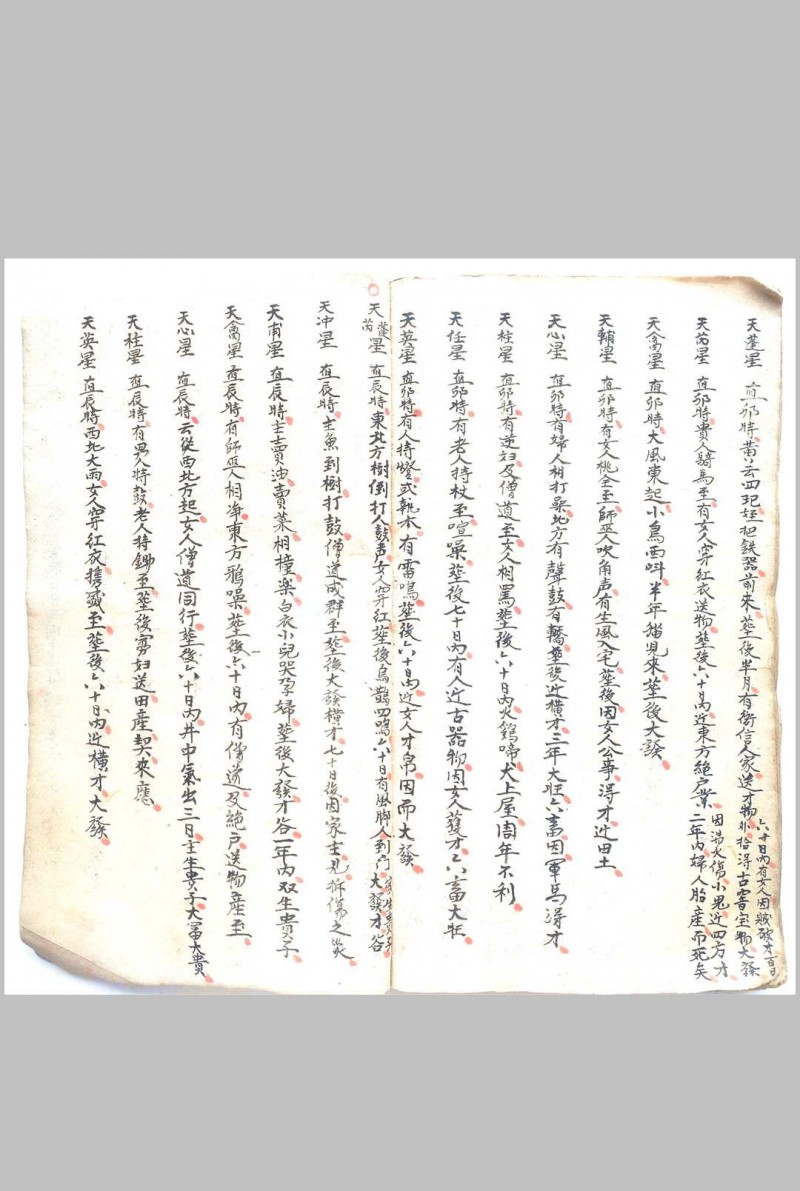 天蓬星 直卯時黃云四起 把鉄器前來葬後半月有人家送才物 拾得古窖宝物大發
六十日內有女人因賊破才百日
天芮星 直卯時貴人騎馬至有女人穿紅衣送物葬後六十日內近東方絕户業二年內婦人胎產而死矣
因湯火傷小兒近四方才
天禽星 直卯時大風東起小鳥西呌半年猫兒來葬後大發
天輔星 直卯時有女人桃仝至師巫人吹角声有生風入宅葬後因女人公事淂才进田土
天心星 直卯時有婦人相打 北方有聲鼓有轎葬後近橫才三年大旺六畜因軍馬淂才
天柱星 直卯時有逆妇及僧道至女人相罵葬後六十日內火鷄啼犬上屋周年不利
天任星 直卯時有老人持杖至喧躁葬後七十日內有人近古器物因女人獲才六畜大旺
天英星 直卯時有人持燈或執木有雷鳴葬後六十日內近女人才帛因而大發
天蓬芮星 直辰時東北方樹倒打人鼓声女人穿紅葬後鳥鵲四鳴六十日有風脚人到门大發才谷
天冲星 直辰時主魚到樹打鼓僧道成群至葬後大發橫才七十日後因家主見拆傷之災
天甫星 直辰時主賣油賣菜相撞 白衣小兒哭孕婦葬後大發才谷一年內双生貴子
天禽星 直辰時有師巫人相 東方鴉噪葬後六十日內有僧道及絕戸送物產至
天心星 直辰時云從西北方起女人僧道同行葬後六十日內井中氣出三日主生貴子大冨大貴
天柱星 直辰時有男人持鼓老人持鋤至葬後寡妇送田產契來應
天英星 直辰時西北大雨女人穿紅衣携 至葬後六十日內近橫才大發